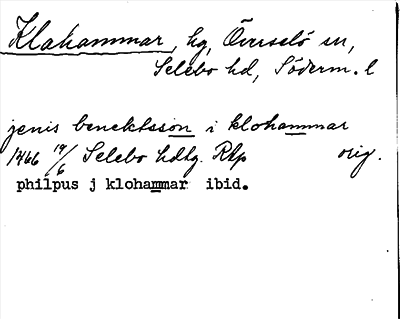 Klahammar, hg, Överselö sn,
Selebo hd, Söderm. l
jenis benektsson i klohammar
1466 19/6 Selebo hdtg. RAp orig.
philpus j klohammar ibid.